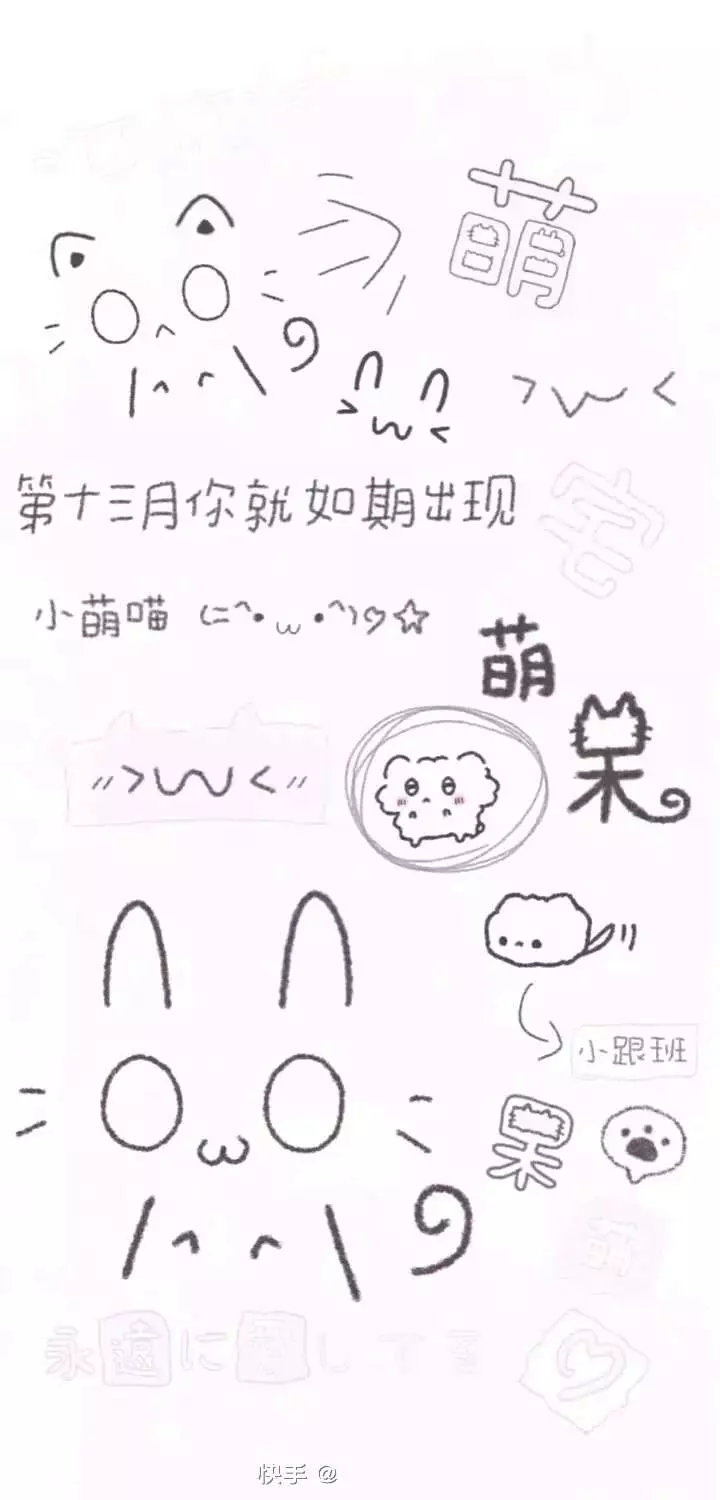 萌
>w<
第十三月你就如期出现
宅
小萌喵 (=^•ω•^)♡☆
萌
呆
//>w<//
小跟班
呆
萌
永遠に愛してる
快手 @